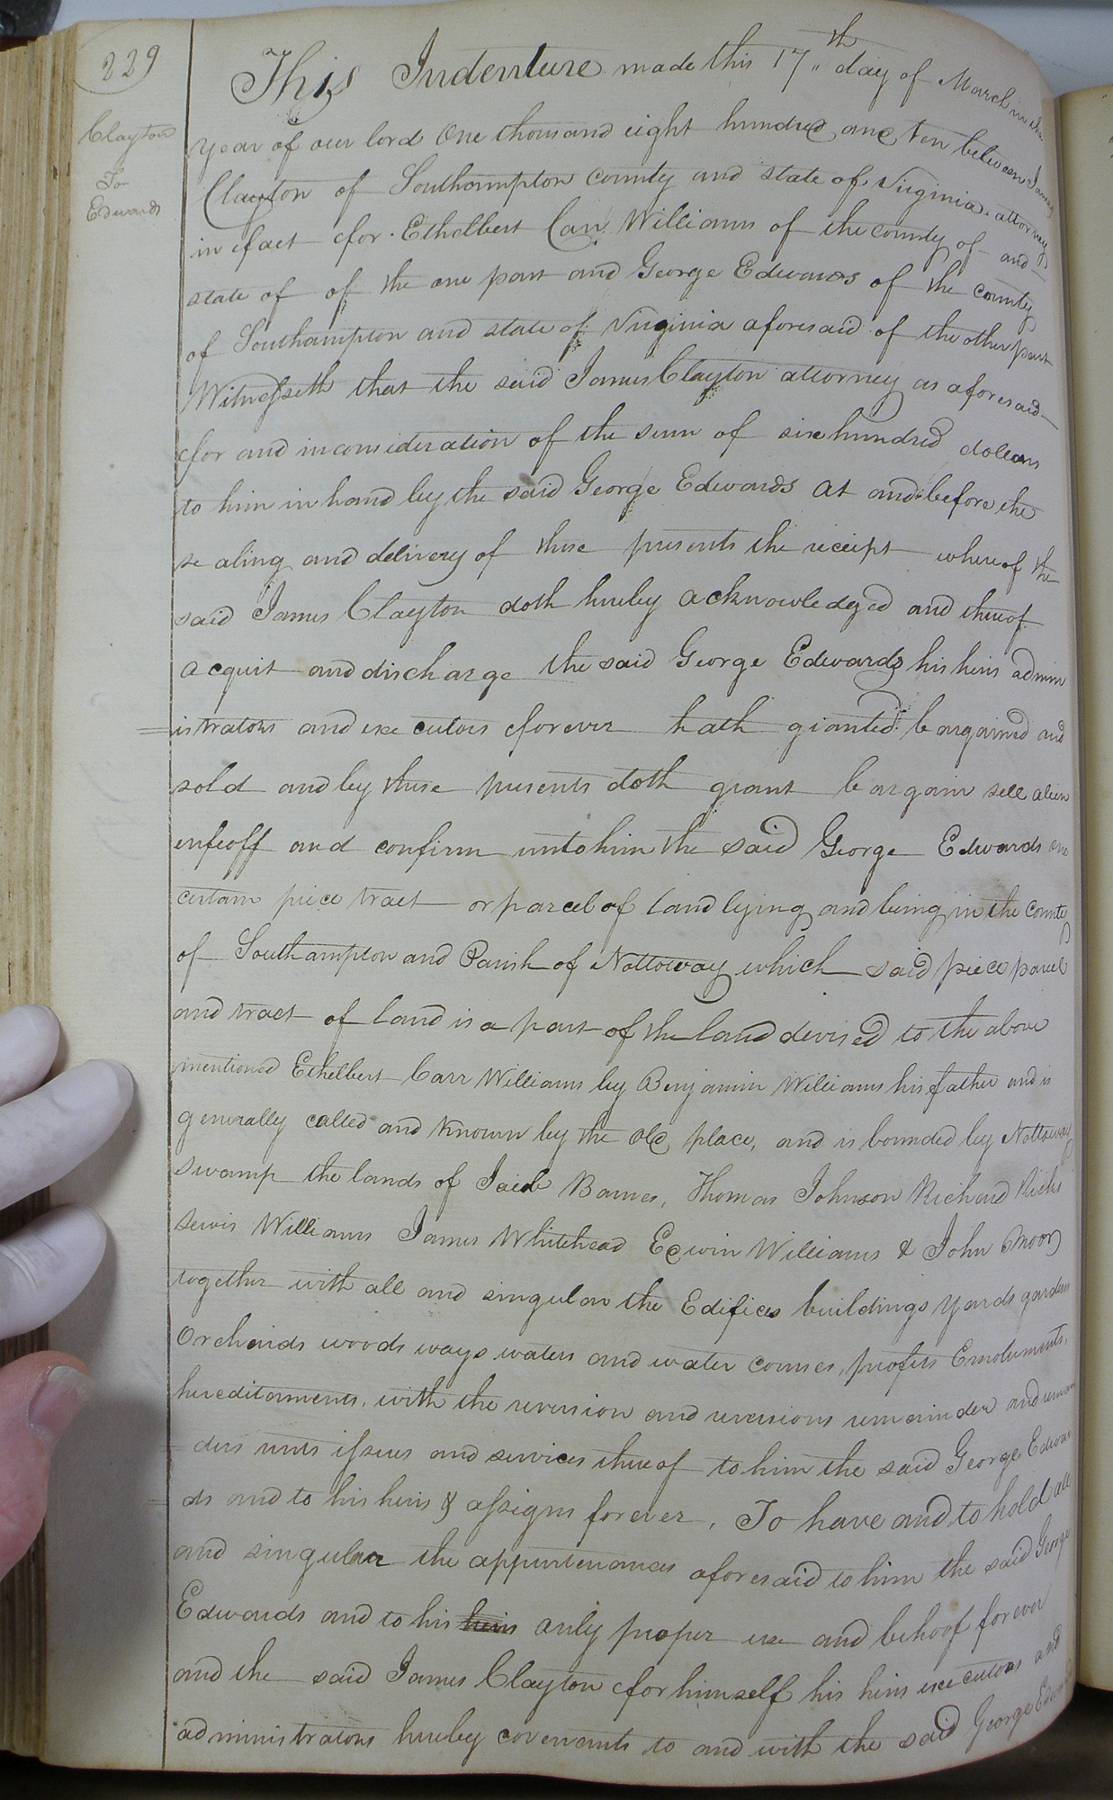 229
Clayton
To
Edwards
This Indenture made this 17th day of March in the
year of our lord One thousand eight hundred and ten between James
Clayton of Southampton county and state of Virginia attorney
in fact for Ethelbert Carr Williams of the county of and
state of of the one part and George Edwards of the county
of Southampton and state of Virginia aforesaid of the other part
Witnesseth that the said James Clayton attorney as aforesaid
for and in consideration of the sum of six hundred dollars
to him in hand by the said George Edwards at and before the
sealing and delivery of these presents the receipt whereof the
said James Clayton doth hereby acknowledged and thereof
acquit and discharge the said George Edwards his heirs admin
=istrators and executors forever hath granted bargained and
sold and by these presents doth grant bargain sell alien
enfeoff and confirm unto him the said George Edwards one
certain piece tract or parcel of land lying and being in the county
of Southampton and Parish of Nottoway which said piece parcel
and tract of land is a part of the land devised to the above
mentioned Ethelbert Carr Williams by Benjamin Williams his father and is
generally called and known by the old place, and is bounded by Nottoway
swamp the lands of Jacob Barnes, Thomas Johnson Richard Ricks
Lewis Williams James Whitehead Edwin Williams & John Moor
together with all and singular the Edifices buildings yards gardens
Orchards woods ways waters and water courses, profits Emoluments,
hereditaments, with the reversion and reversions remainder and remain
ders rents issues and services thereof to him the said George Edwar
ds and to his heirs & assigns forever, To have and to hold all
and singular the appurtenances aforesaid to him the said George
Edwards and to his only proper use and behoof forever
and the said James Clayton for himself his heirs executors and
administrators hereby covenants to and with the said George Edwards